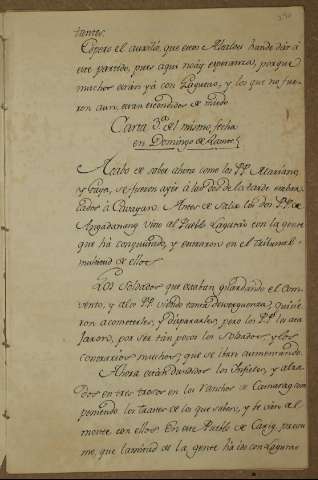 tantes.
Espero el auxilio, que esos Alcaldes han de dar á
este partido, pues aqui no áy esperanza, porque
muchos están yá con Lagutao, y los que no fue-
ron aun, están escondidos de miedo
Carta 3.ª del mismo, fecha
en Domingo de Ramos
Acabo de saber ahora como los P.P. Mariano,
y Goya, se fueron ayer á las dos de la tarde embar-
cados á Cavayan. Antes de salir los dos P.P. de
Angadanang vino al Pueblo Lagutao con la gente
que há conquistado, y entraron en el tribunal
multitud de ellos.
Los Soldados que estaban guardando el Con-
vento, y a los P.P. viendo tanta desverguenza, quisie-
ron acometerles, y dispararles, pero los P.P. los ata-
jaron, por ser tan pocos los Soldados, y los
contrarios muchos, que se iban aumentando.
Ahora están divididos los Infieles, y alza-
dos en tres trozos en los Ranchos de Camarag com-
poniendo los
de los que saben, y se vién al
monte con ellos. En este Pueblo de Carig presu-
mo, que la mitad de la gente ha ido con Lagutao